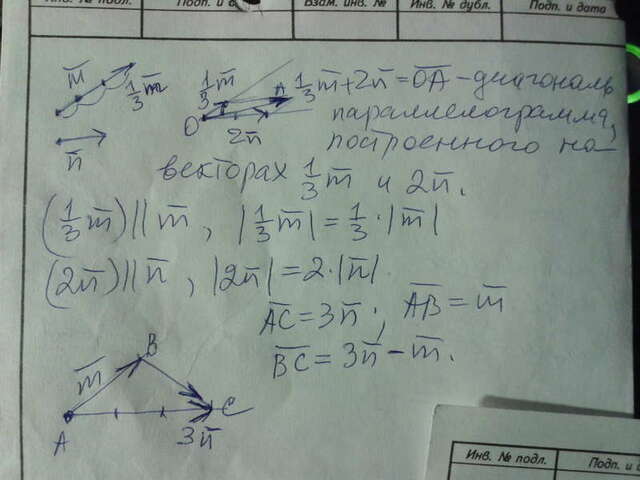 Инв. № подл. Подп. и Взам. инв. № Инв. № дубл. Подп. и дата
m̅ 1/3 m̅ 1/3 m̅ A 1/3 m̅ + 2n̅ = O̅A̅ - диагональ
O 2n̅ параллелограмма,
n̅ построенного на
векторах 1/3 m̅ и 2n̅.
(1/3 m̅) || m̅, |1/3 m̅| = 1/3 · |m̅|
(2n̅) || n̅, |2n̅| = 2·|n̅|.
A̅C̅ = 3n̅; A̅B̅ = m̅
B̅C̅ = 3n̅ - m̅.
m̅ B
A 3n̅ C
Инв. № подл. Подп. и